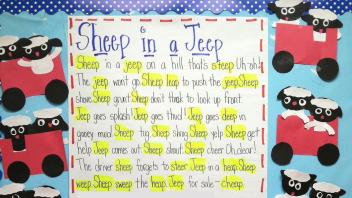 Sheep in a Jeep
Sheep in a jeep on a hill that's steep Uh oh!
The jeep won't go. Sheep leap to push the jeep. Sheep
shove. Sheep grunt. Sheep don't think to look up front.
Jeep goes splash! Jeep goes thud! Jeep goes deep in
gooey mud. Sheep tug. Sheep shrug. Sheep yelp. Sheep get
help. Jeep comes out. Sheep shout. Sheep cheer. Oh, dear!
The driver sheep forgets to steer. Jeep in a heap. Sheep
weep. Sheep sweep the heap. Jeep for sale - cheap.